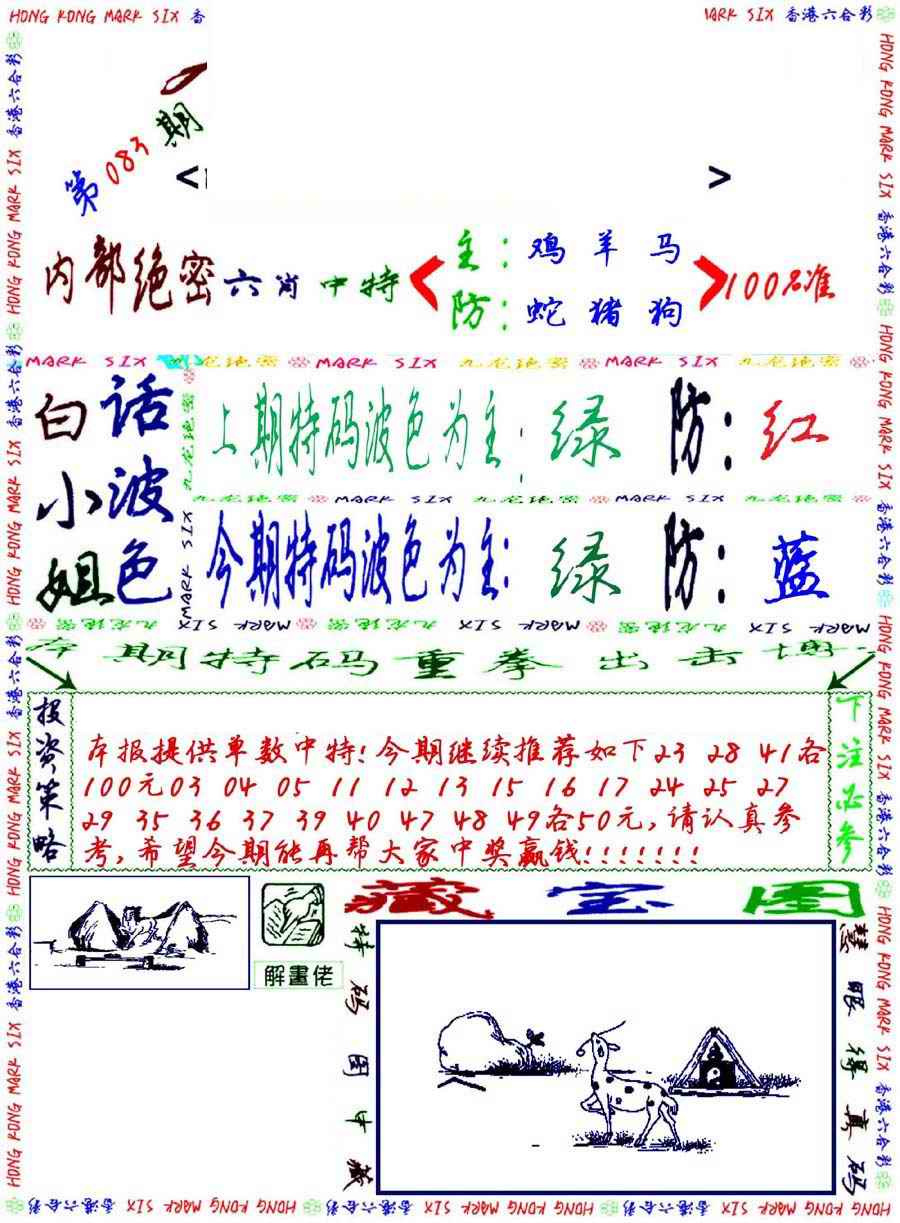 HONG KONG MARK SIX 香
MARK SIX 香港六合彩
第083期
< >
内部绝密六肖中特
主：鸡 羊 马
防：蛇 猪 狗
100%准
MARK SIX 九龙绝密 MARK SIX 九龙绝密 MARK SIX 九龙绝密
白话
小波
姐色
上期特码波色为主：绿 防：红
九龙绝密 MARK SIX 九龙绝密 MARK SIX 九龙绝密 MARK SIX
今期特码波色为主：绿 防：蓝
九龙绝密 MARK SIX 九龙绝密 MARK SIX 九龙绝密 MARK SIX
本期特码重拳出击
投资策略
本报提供单数中特!今期继续推荐如下23 28 41各
100元03 04 05 11 12 13 15 16 17 24 25 27
29 35 36 37 39 40 47 48 49各50元,请认真参
考,希望今期能再帮大家中奖赢钱!!!!!!!
下注必参
解畫佬
藏宝图
特码图中藏
慧眼得真码
HONG KONG MARK SIX 香港六合彩